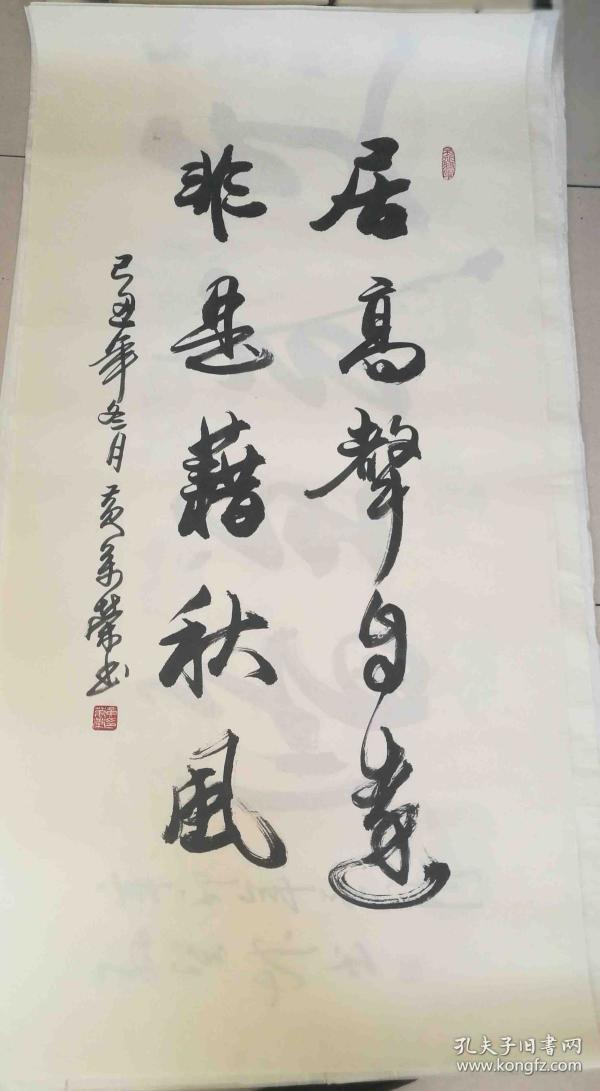 居高聲自遠
非是藉秋風
己丑年冬月黄

孔夫子旧书网
www.kongfz.com